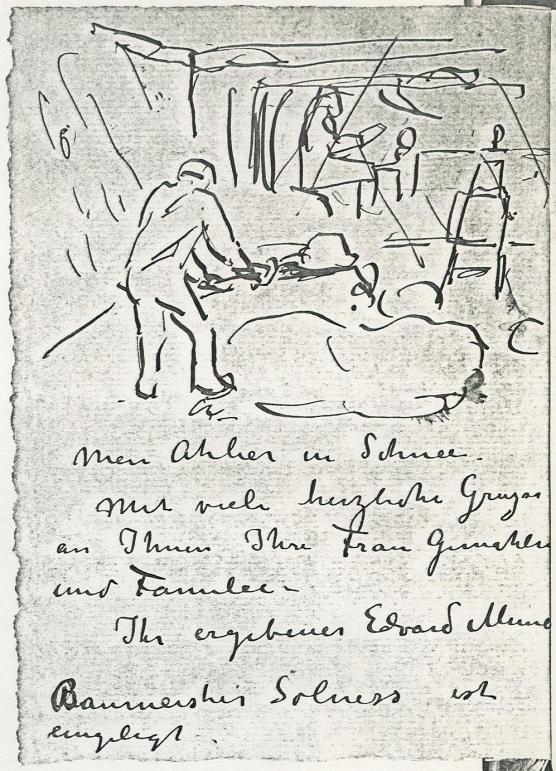 Mein Atelier in Schnee.
Mit viele herzliche Grüsse
an Ihnen Ihre Frau Gemahlin
und Familie –
Ihr ergebener Edvard Munc
Baumeister Solness ist
eingelegt.